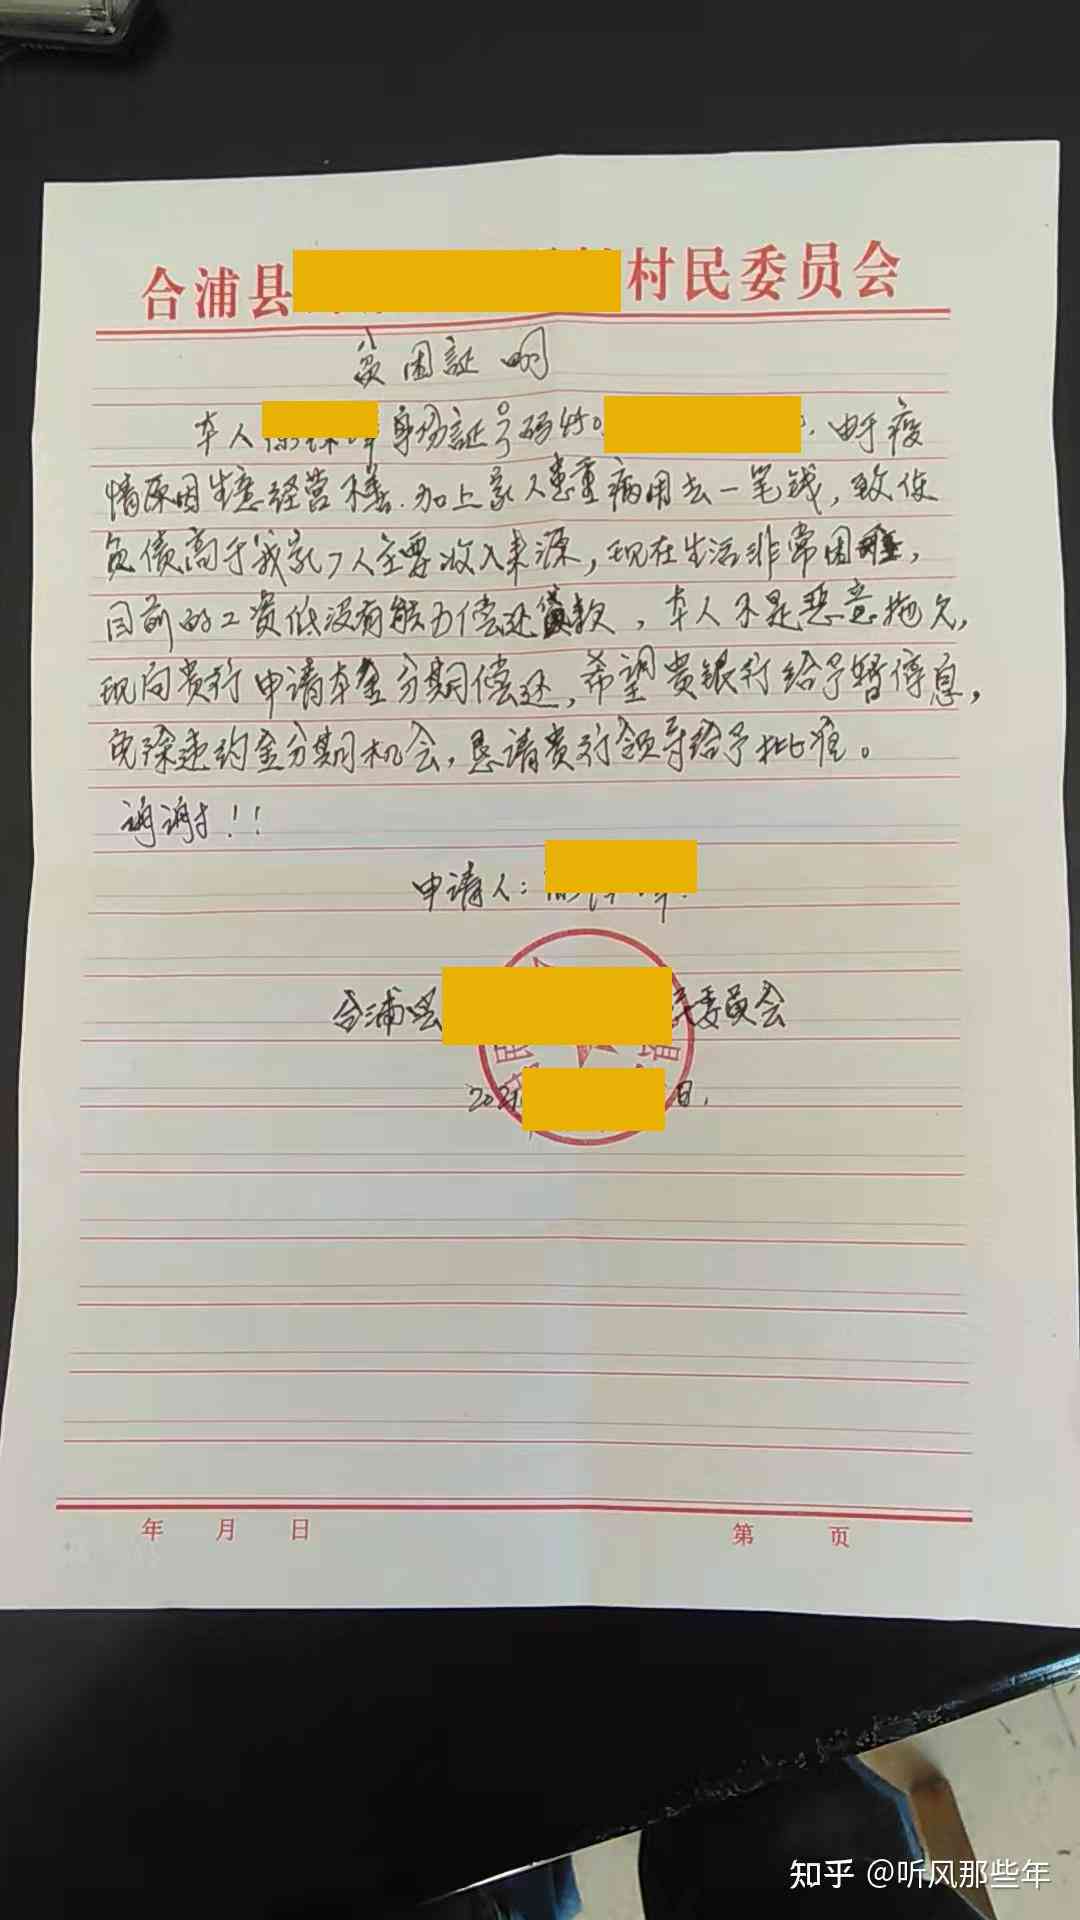 合浦县 村民委员会
贫困証明
本人 身份証号码 由于疫
情原因生意经营不善.加上家人患重病用去一笔钱，致使
负债高于我家7人主要收入来源，现在生活非常困难，
目前的工资低没有能力偿还贷款，本人不是恶意拖欠，
现向贵行申请本金分期偿还，希望贵银行给予暂停息，
免除违约金分期机会，恳请贵行领导给予批准。
谢谢！！
申请人：
合浦县 民委员会
2021 日.
年 月 日 第 页
知乎 @听风那些年